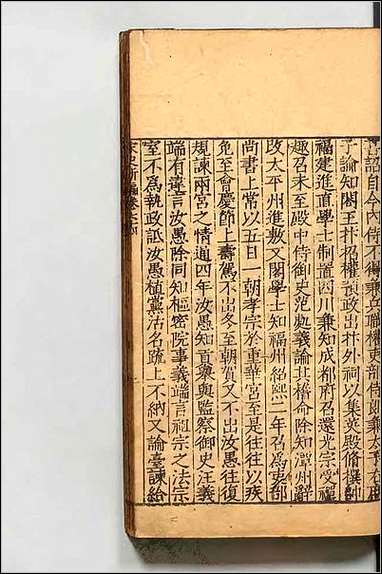 詔自今內侍不得兼兵職權吏部侍郎兼太子右
子論知閣王抃招權預政出抃外祠以集英殿修撰帥
福建進直學士制置四川兼知成都府召還光宗受禪
趣召未至殿中侍御史范処義論其稽命除知潭州辭
改太平州進敷文閣學士知福州紹熙二年召爲吏部
尚書上常以五日一朝孝宗於重華宮至是往往以疾
免至會慶節上壽駕不出冬至朝賀又不出汝愚往復
規諫兩宮之情通四年汝愚知貢舉與監察御史汪義
端有違言汝愚除同知樞密院事義端言祖宗之法宗
室不爲執政詆汝愚植黨沽名疏上不納又論臺諫給
宋史新編卷